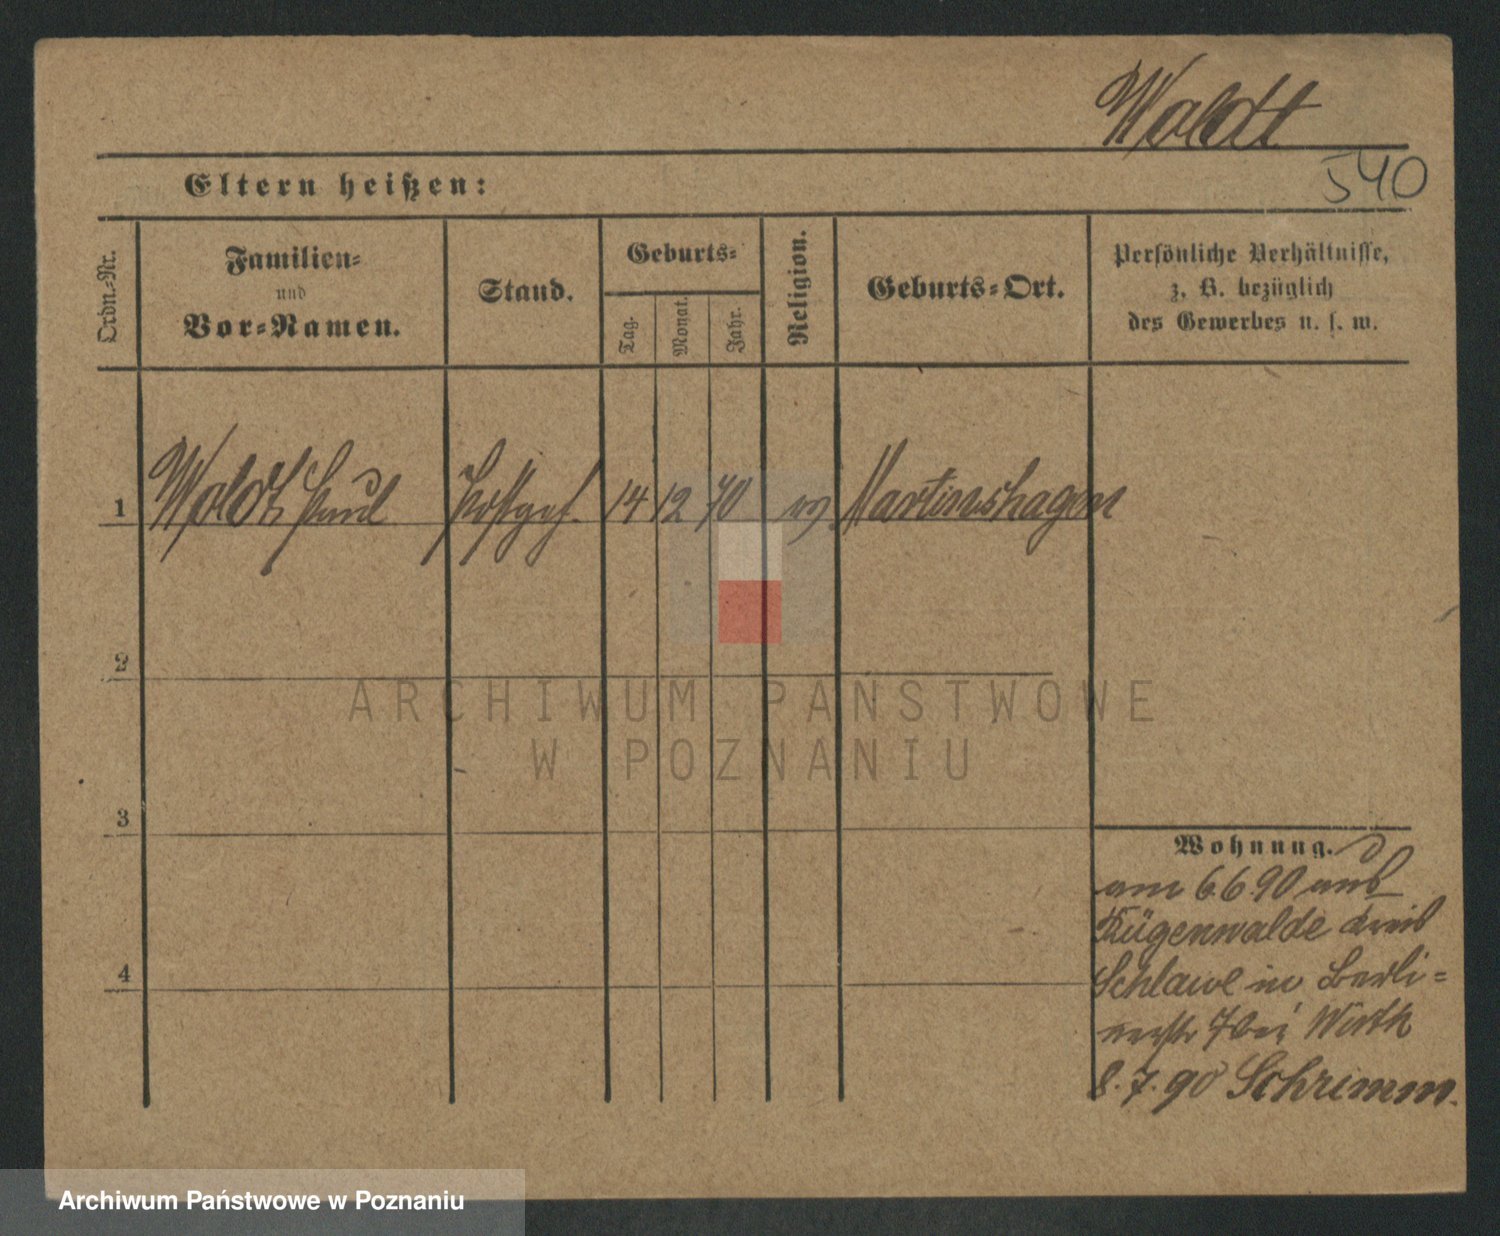 Waldt
540
Eltern heißen:
Ordn.-Nr.
Familien-
und
Vor-Namen.
Stand.
Geburts-
Tag.
Monat.
Jahr.
Religion.
Geburts-Ort.
Persönliche Verhältnisse,
z. B. bezüglich
des Gewerbes u. s. w.
1 Waldt Paul Postgeh. 14 12 70 ev Martinshagen
2
3
4
Wohnung.
am 6.6.90 aus
Rügenwalde Kreis
Schlawe in Berli=
nerstr 7 bei Wirth
8.7.90 Schrimm.
ARCHIWUM PAŃSTWOWE
W POZNANIU
Archiwum Państwowe w Poznaniu